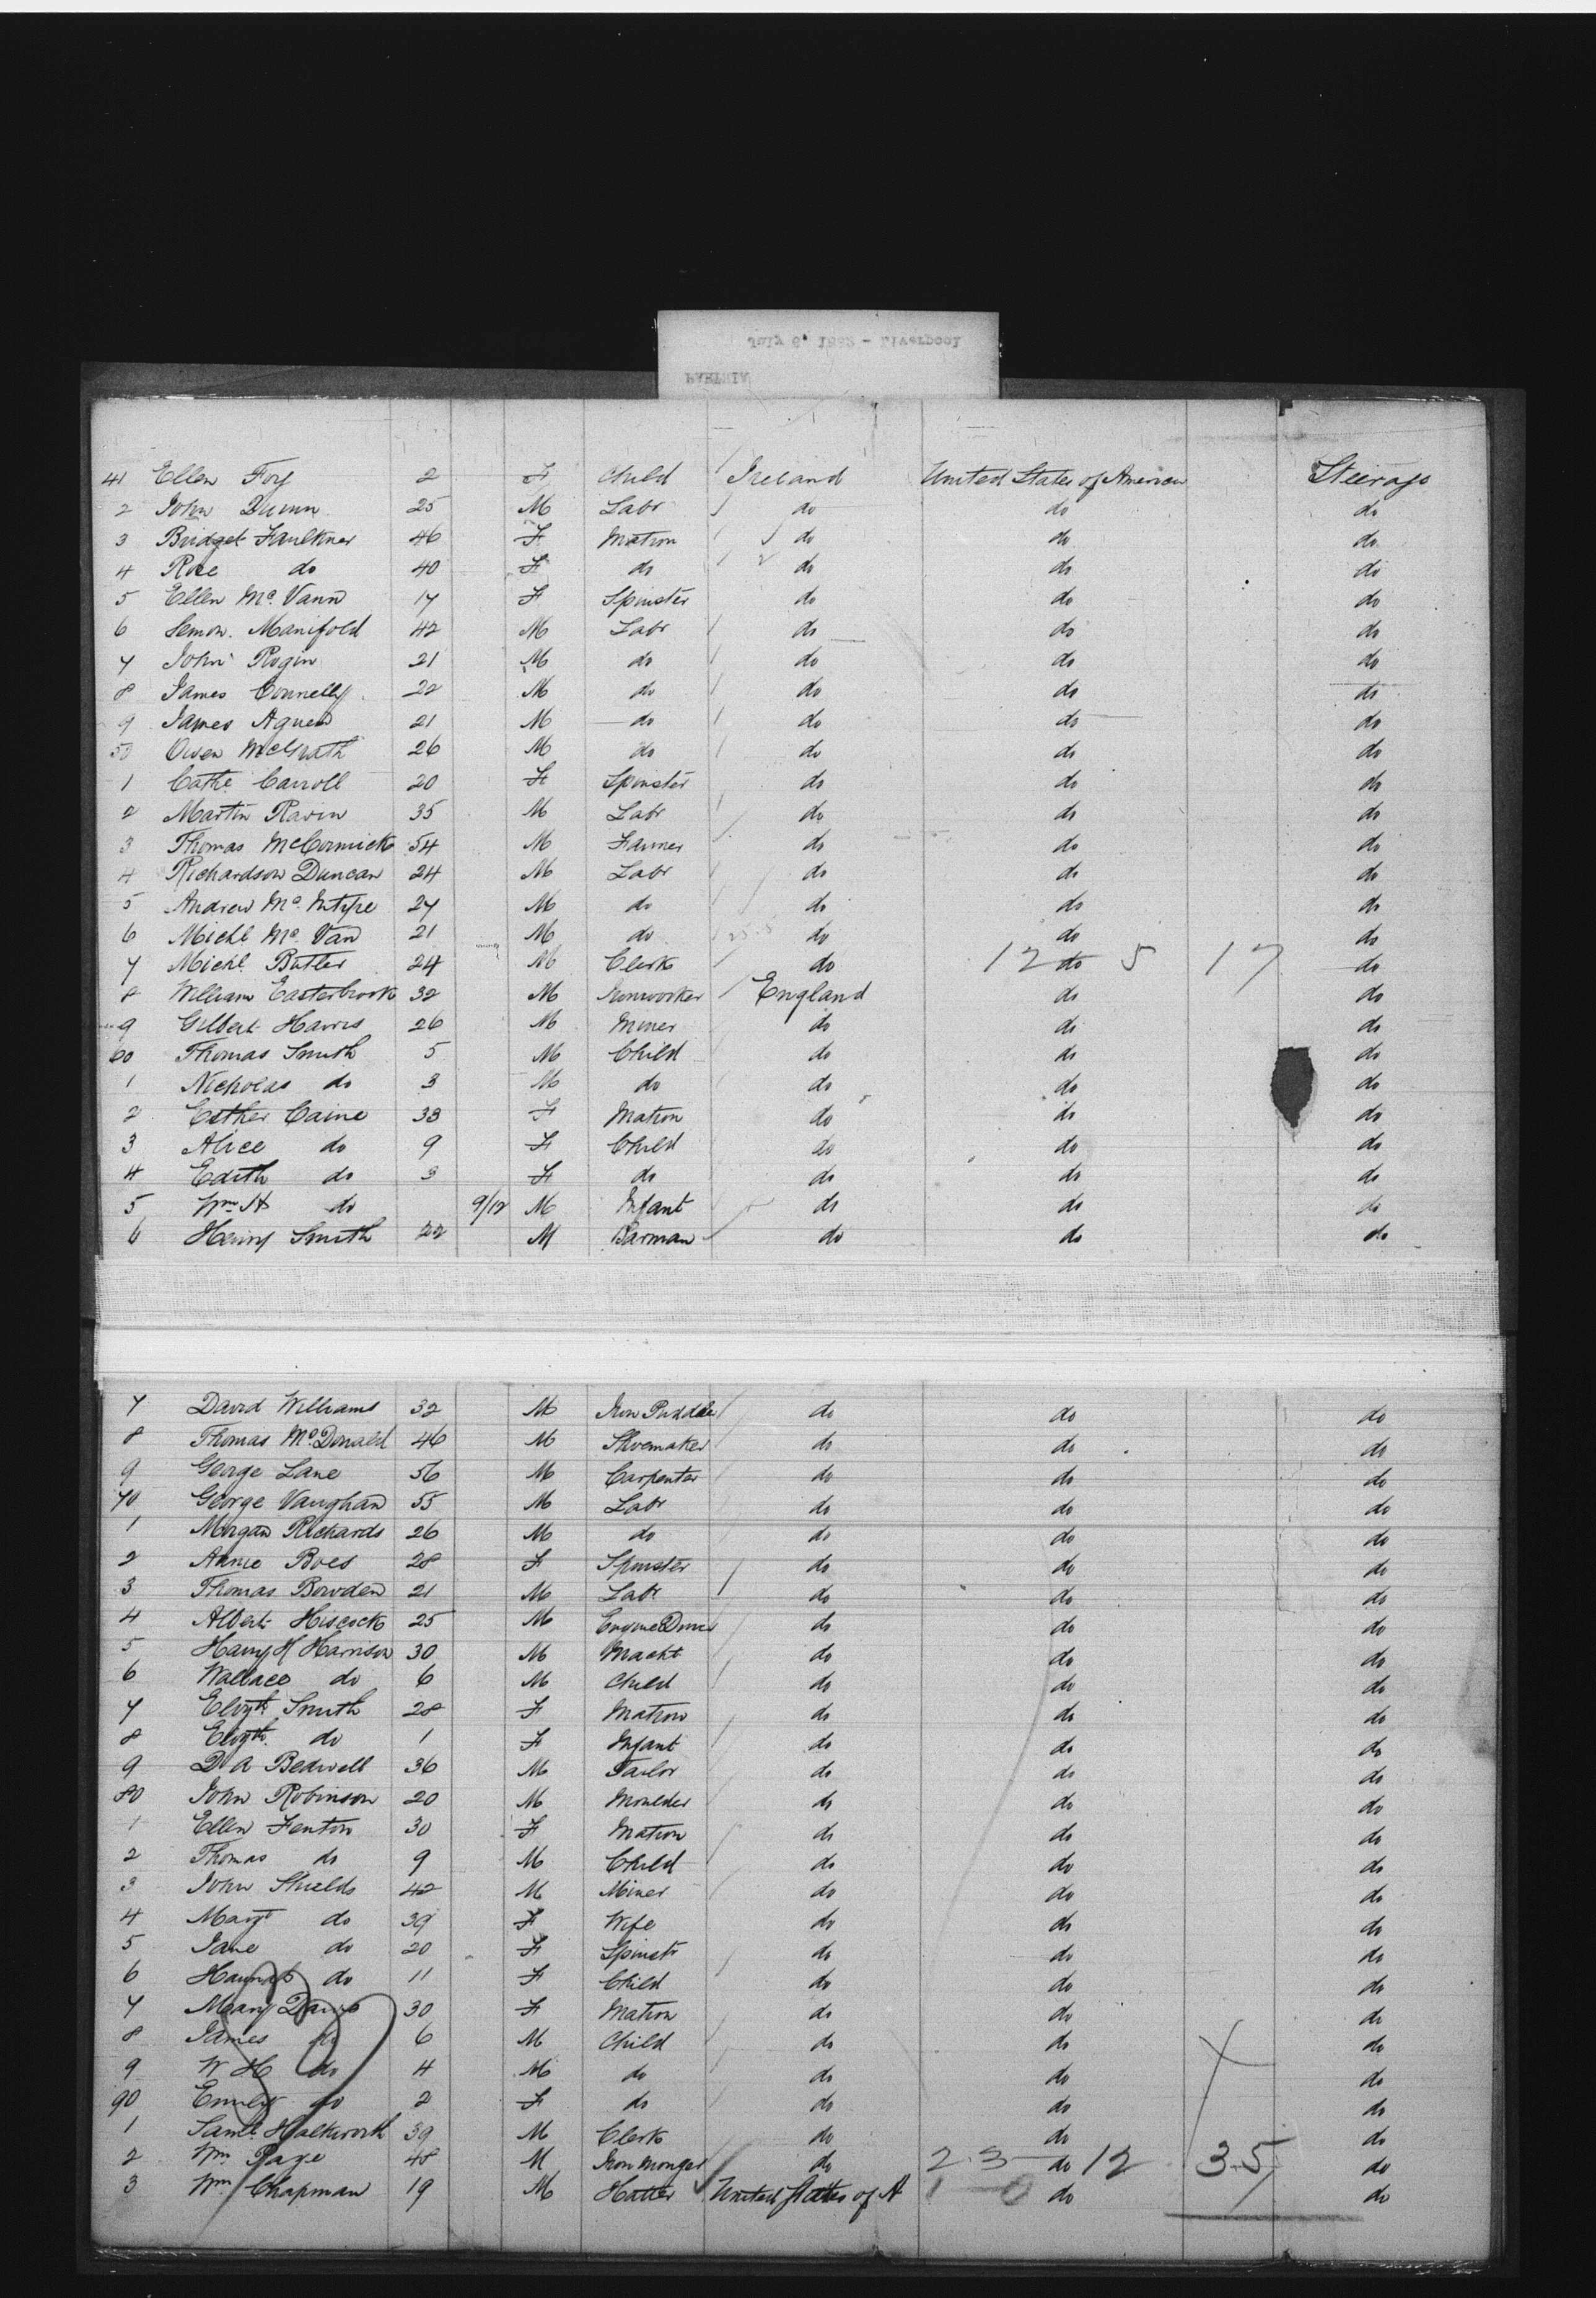 July 6, 1882 - Liverpool
PARTHIA
41 Ellen Foy 2 F Child Ireland United States of America Steerage
2 John Dunn 25 M Labr do do do
3 Bridget Faulkner 46 F Matron do do do
4 Rose do 40 F do do do do
5 Ellen Mc Vann 17 F Spinster do do do
6 Simon Manifold 42 M Labr do do do
7 John Rogin 21 M do do do do
8 James Connelly 22 M do do do do
9 James Agnew 21 M do do do do
50 Owen McGrath 26 M do do do do
1 Cathe Carroll 20 F Spinster do do do
2 Martin Ravin 35 M Labr do do do
3 Thomas McCormick 54 M Farmer do do do
4 Richardson Duncan 24 M Labr do do do
5 Andrew Mc Intyre 27 M do do do do
6 Michl Mc Van 21 M do do do do
7 Michl Butler 24 M Clerk do 12 do 5 17 do
8 William Easterbrook 32 M Ironworker England do do
9 Gilbert Harris 26 M Miner do do do
60 Thomas Smith 5 M Child do do do
1 Nicholas do 3 M do do do do
2 Esther Caine 33 F Matron do do do
3 Alice do 9 F Child do do do
4 Edith do 3 F do do do do
5 Wm H do 9/12 M Infant do do do
6 Henry Smith 22 M Barman do do do
7 David Williams 32 M Iron Puddler do do do
8 Thomas McDonald 46 M Shoemaker do do do
9 George Lane 56 M Carpenter do do do
70 George Vaughan 55 M Labr do do do
1 Morgan Richards 26 M do do do do
2 Annie Boes 28 F Spinster do do do
3 Thomas Bowden 21 M Labr do do do
4 Albert Hiscock 25 M Engine Driver do do do
5 Harry H Harrison 30 M Macht do do do
6 Wallace do 6 M Child do do do
7 Elizth Smith 28 F Matron do do do
8 Elizth do 1 F Infant do do do
9 D A Bedwell 36 M Tailor do do do
80 John Robinson 20 M Moulder do do do
1 Ellen Fenton 30 F Matron do do do
2 Thomas do 9 M Child do do do
3 John Shields 42 M Miner do do do
4 Margt do 39 F Wife do do do
5 Jane do 20 F Spinstr do do do
6 Hannah do 11 F Child do do do
7 Mary Davis 30 F Matron do do do
8 James do 6 M Child do do do
9 W H do 4 M do do do do
90 Emily do 2 F do do do do
1 Saml Halkworth 39 M Clerk do do do
2 Wm Page 48 M Iron Monger do 23 do 12 35 do
3 Wm Chapman 19 M Hatter United States of A 1 0 do 1 do